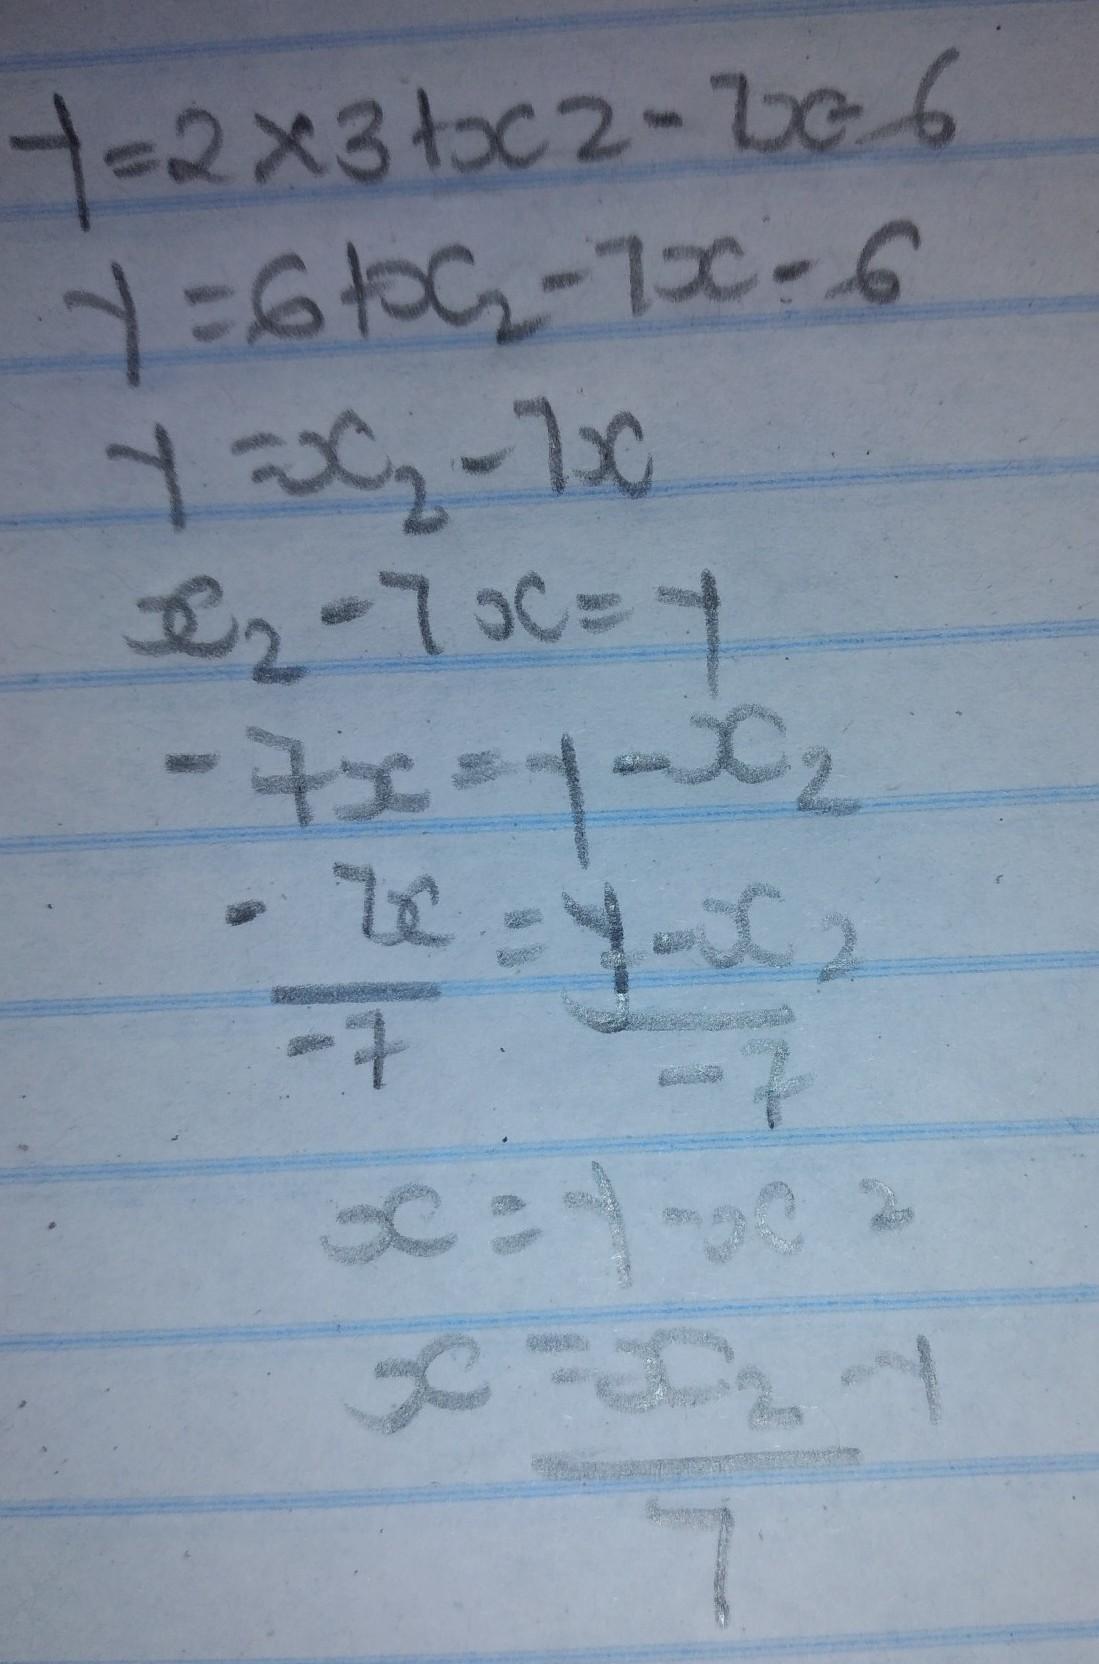 y=2×3+x2-7x-6
y=6+x₂-7x-6
y=x₂-7x
x₂-7x=y
-7x=y-x₂
-7x=y-x₂
-7 -7
x=y-x2
x=x₂-y
7